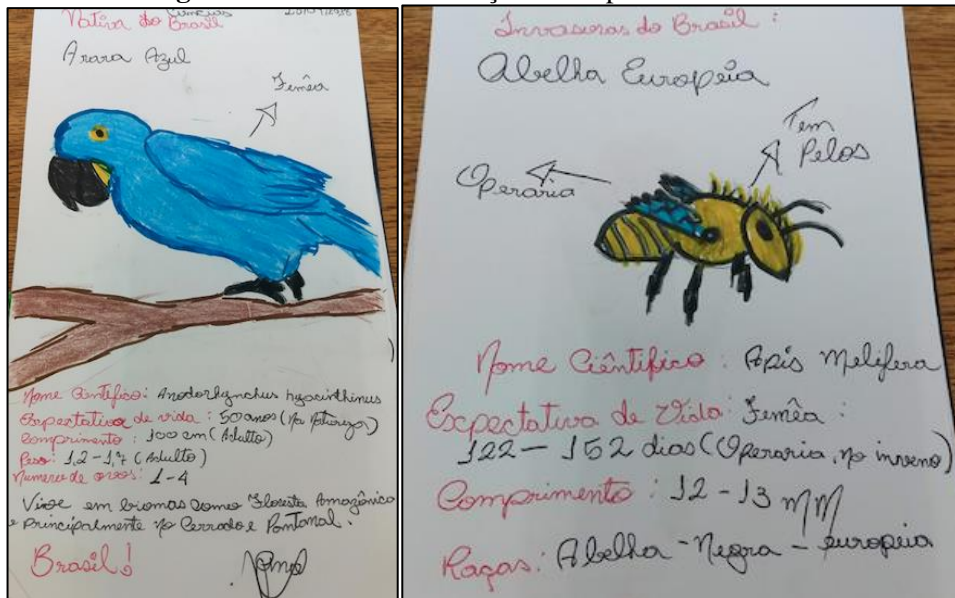 Ciências
Nativa do Brasil
Arara Azul
Femêa
Nome Científico: Anodorhynchus hyacinthinus
Expectativa de vida: 50 anos (Na Natureza)
Comprimento: 100 cm (Adulto)
Peso: 1,2 - 1,7 (Adulto)
Numero de ovos: 1-4
Vive em biomas como Floresta Amazônica
e principalmente no Cerrado e Pantanal.
Brasil!
Invasoras do Brasil:
Abelha Européia
Tem
Pelos
Operária
Nome Ciêntifico: Apis Melifera
Expectativa de Vida: Femêa:
122 - 152 dias (Operaria, no inverno)
Comprimento: 12-13 MM
Raças: Abelha - Negra - européia